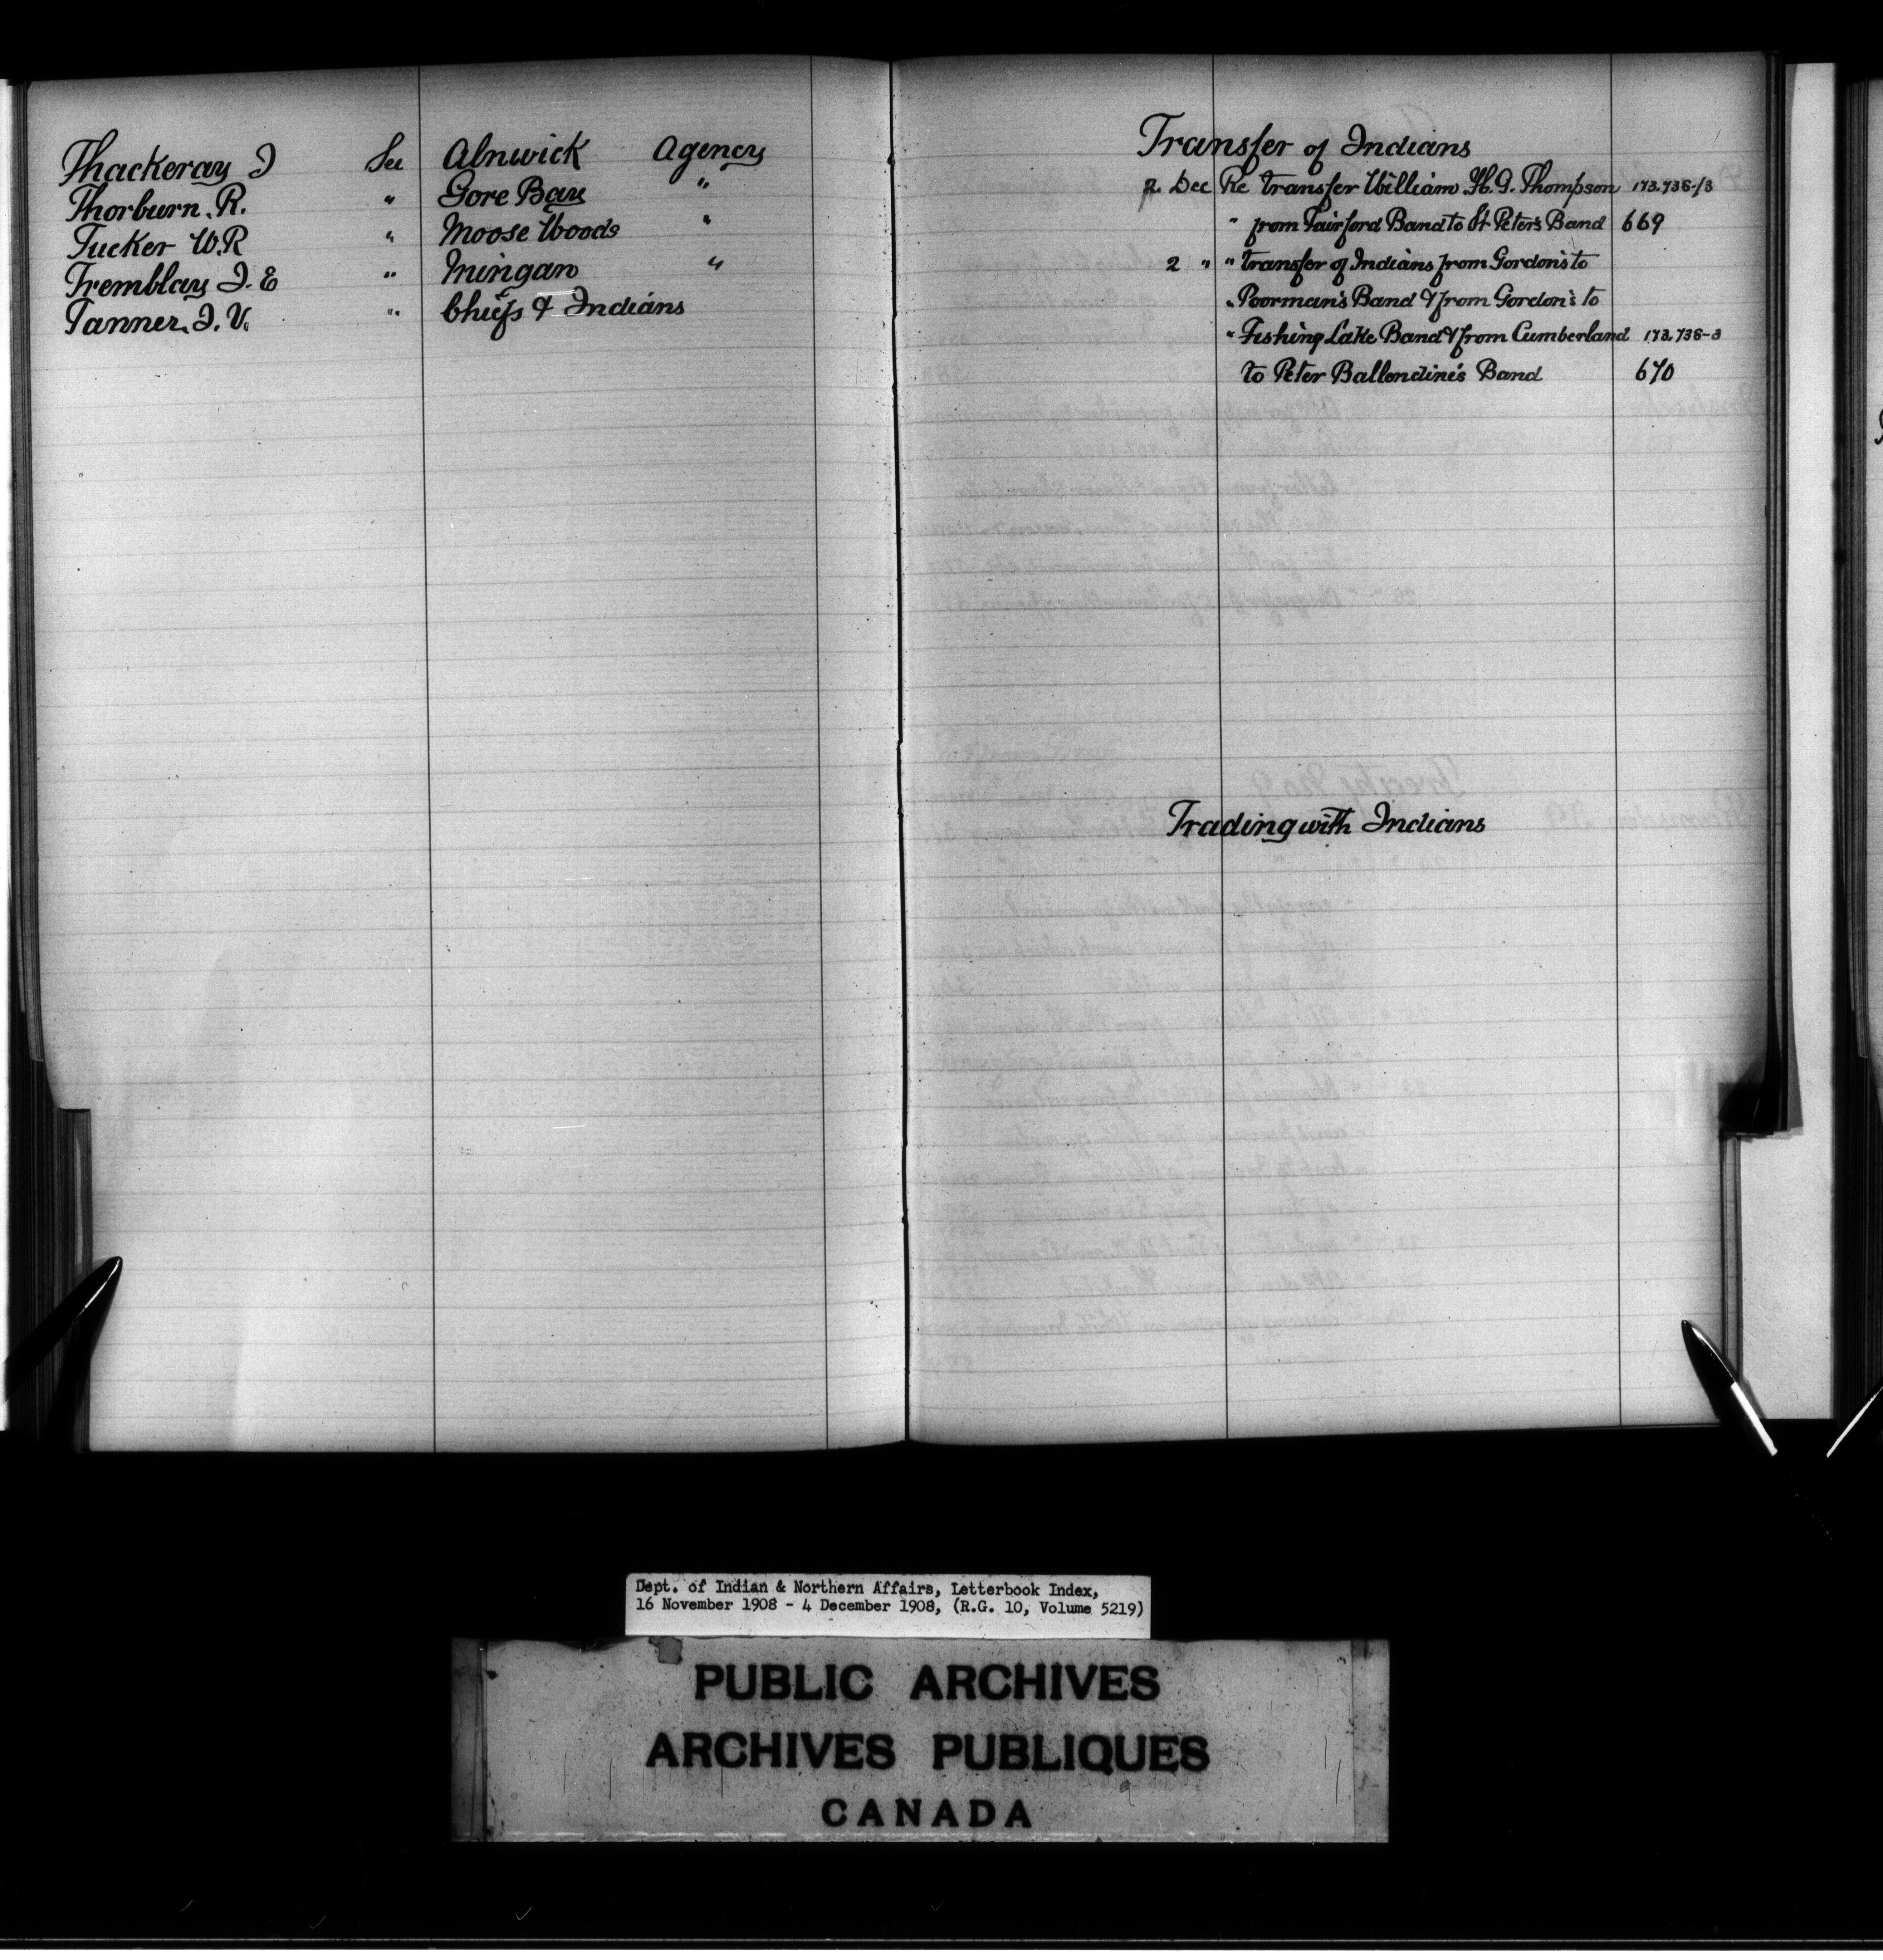 Thackeray J See Alnwick Agency
Thorburn. R. " Gore Bay "
Tucker W.R " Moose Woods "
Tremblay J. E " Mingan "
Tanner. J. V. " Chiefs & Indians
Transfer of Indians
2 Dec Re transfer William H. G. Thompson 173.738-13
" from Fairford Band to St Peter's Band 669
2 " " transfer of Indians from Gordon's to
" Poorman's Band & from Gordon's to
" Fishing Lake Band & from Cumberland 173.738-3
to Peter Ballendine's Band 670
Trading with Indians
Dept. of Indian & Northern Affairs, Letterbook Index,
16 November 1908 - 4 December 1908, (R.G. 10, Volume 5219)
PUBLIC ARCHIVES
ARCHIVES PUBLIQUES
CANADA